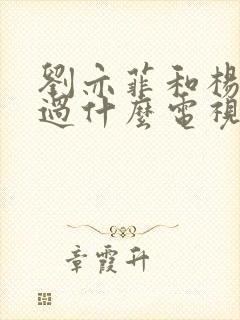 劉亦菲和楊
過什麼電視
章霞升